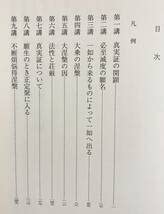 目次
凡例
第一講　真実証の開顕
第二講　必至滅度の願名
第三講　一如から来るものによって一如へ出る
第四講　大乗の涅槃
第五講　大涅槃の因
第六講　法性と荘厳
第七講　真実証について
第八講　願生のとき正定聚に入る
第九講　不断煩悩得涅槃